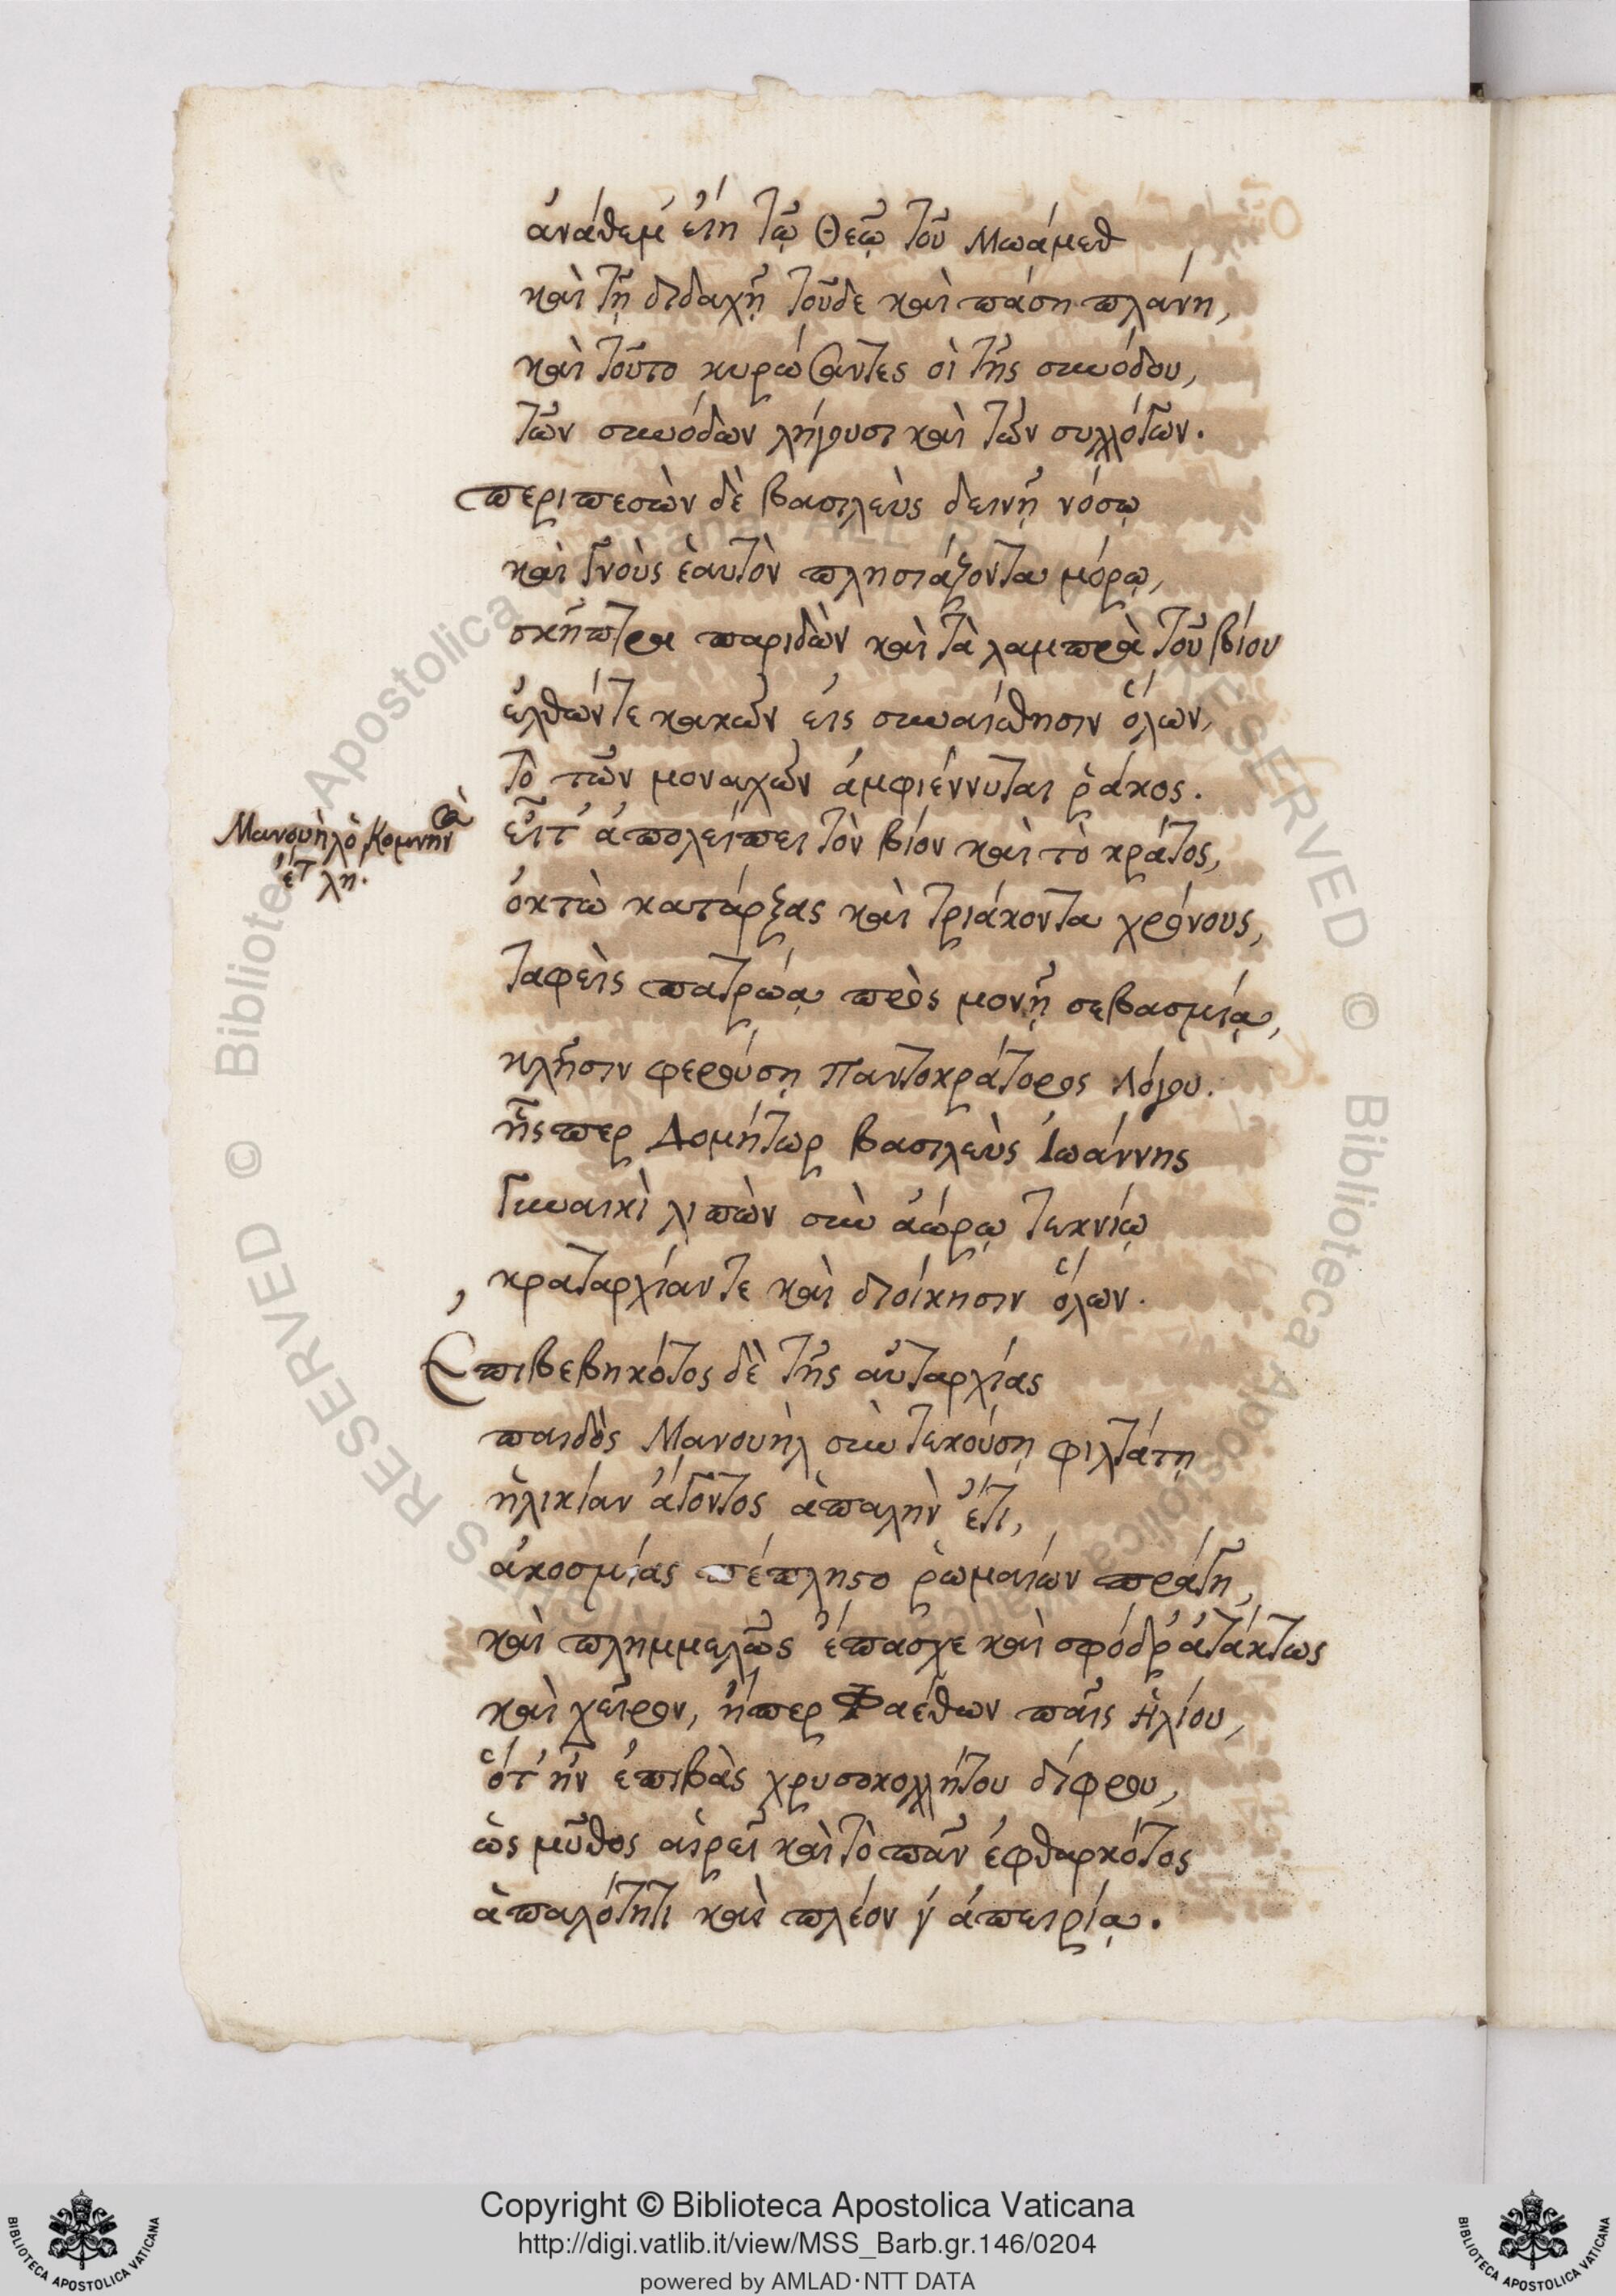 ἀνάθεμ' εἴη τῷ Θεῷ τοῦ Μωάμεθ
καὶ τῇ διδαχῇ τοῦδε καὶ πάσῃ πλάνῃ,
καὶ τοῦτο κυρώσαντες οἱ τῆς συνόδου,
τῶν συνόδων λήγουσι καὶ τῶν συλλόγων.
περιπεσὼν δὲ βασιλεὺς δεινῇ νόσῳ
καὶ γνοὺς ἑαυτὸν πλησιάζοντα μόρῳ,
σκῆπτρα παριδὼν καὶ τὰ λαμπρὰ τοῦ βίου
ἐλθών τε κακῶν εἰς συναίσθησιν ὅλων,
τὸ τῶν μοναχῶν ἀμφιέννυται ῥάκος.
Μανουὴλ ὁ Κομνην
ἔτ λη.
εἶτ' ἀπολείπει τὸν βίον καὶ τὸ κράτος,
ὀκτὼ κατάρξας καὶ τριάκοντα χρόνους,
ταφεὶς πατρῴα πρὸς μονῇ σεβασμίᾳ,
κλῆσιν φερούσῃ Παντοκράτορος Λόγου.
ἧςπερ Δομήτωρ βασιλεὺς Ἰωάννης
γυναικὶ λιπὼν σὺν ἀώρῳ τεκνίῳ
κραταρχίαν τε καὶ διοίκησιν ὅλων.
Ἐπιβεβηκότος δὲ τῆς αὐταρχίας
παιδὸς Μανουὴλ σὺν τεκούσῃ φιλτάτῃ
ἡλικίαν ἄγοντος ἁπαλὴν ἔτι,
ἀκοσμίας πέπληστο ῥωμαίων πράγη,
καὶ πλημμελῶς ἔπασχε καὶ σφόδρ' ἀτάκτως
καὶ χεῖρον, ἤπερ Φαέθων παῖς Ἡλίου,
ὅτ' ἦν ἐπιβὰς χρυσοκολλήτου δίφρου,
ὡς μῦθος αἱρεῖ καὶ τὸ πᾶν ἐφθαρκότος
ἁπαλότητι καὶ πλέον γ' ἀπειρίᾳ.
Copyright © Biblioteca Apostolica Vaticana
http://digi.vatlib.it/view/MSS_Barb.gr.146/0204
powered by AMLAD·NTT DATA
BIBLIOTECA APOSTOLICA VATICANA
BIBLIOTECA APOSTOLICA VATICANA